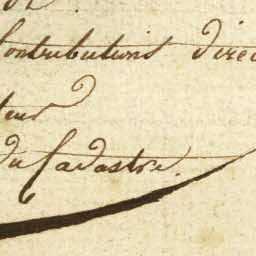 Contributions direc
teur
du Cadastre.